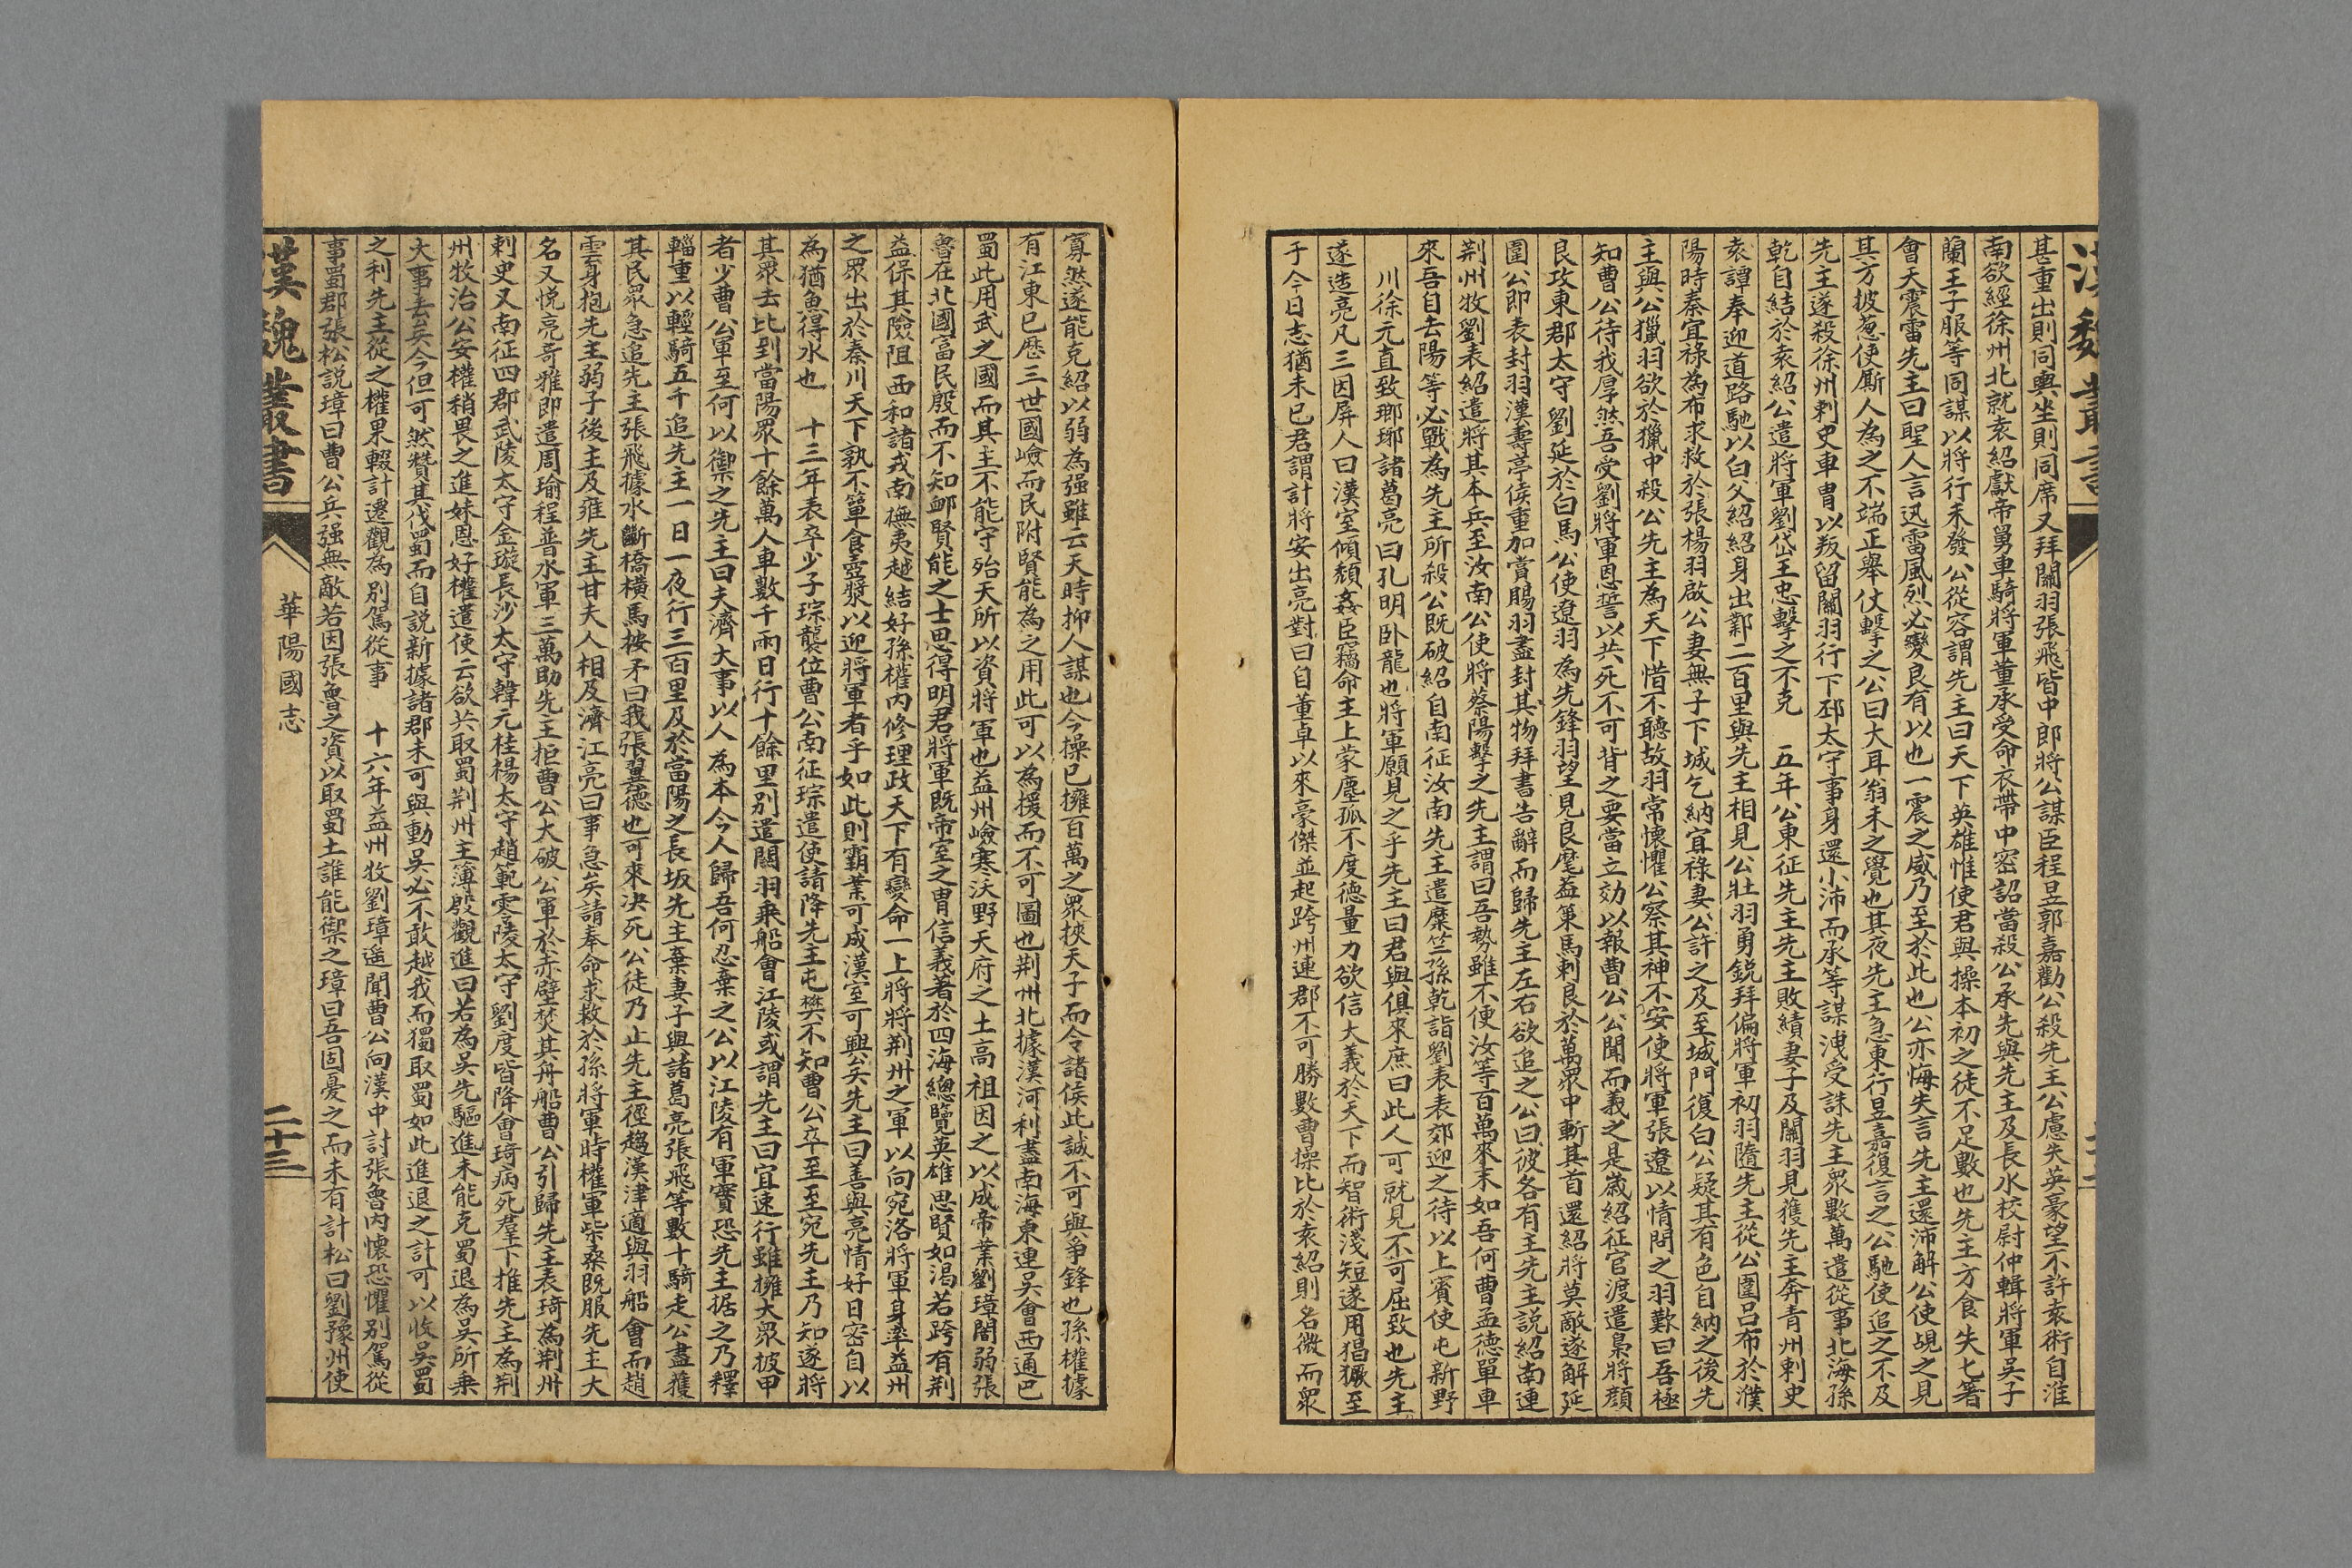 漢魏叢書
甚重出則同輿坐則同席又拜關羽張飛皆中郎將公謀臣程昱郭嘉勸公殺先主公慮失英豪望不許袁術自淮
南欲經徐州北就袁紹獻帝舅車騎將軍董承受命衣帶中密詔當殺公承先與先主及長水校尉仲輯將軍吳子
蘭王子服等同謀以將行未發公從容謂先主曰天下英雄惟使君與操本初之徒不足數也先主方食失匕箸
會天震雷先主曰聖人言迅雷風烈必變良有以也一震之威乃至於此也公亦悔失言先主還沛解公使覘之見
其方披葱使厮人為之不端正舉仗擊之公曰大耳翁未之覺也其夜先主急東行昱嘉復言之公馳使追之不及
先主遂殺徐州刺史車胄以叛留關羽行下邳太守事身還小沛而承等謀洩受誅先主眾數萬遣從事北海孫
乾自結於袁紹公遣將軍劉岱王忠擊之不克　五年公東征先主先主敗績妻子及關羽見獲先主奔青州刺史
袁譚奉迎道路馳以白父紹紹身出鄴二百里與先主相見公壯羽勇銳拜偏將軍初羽隨先主從公圍呂布於濮
陽時秦宜祿為布求救於張楊羽啟公妻無子下城乞納宜祿妻公許之及至城門復白公疑其有色自納之後先
主與公獵羽欲於獵中殺公先主為天下惜不聽故羽常懷懼公察其神不安使將軍張遼以情問之羽歎曰吾極
知曹公待我厚然吾受劉將軍恩誓以共死不可背之要當立効以報曹公公聞而義之是歲紹征官渡遣梟將顏
良攻東郡太守劉延於白馬公使遼羽為先鋒羽望見良麾蓋策馬刺良於萬眾中斬其首還紹將莫敵遂解延
圍公即表封羽漢壽亭侯重加賞賜羽盡封其物拜書告辭而歸先主左右欲追之公曰彼各有主先主說紹南連
荆州牧劉表紹遣將其本兵至汝南公使將蔡陽擊之先主謂曰吾勢雖不便汝等百萬來未如吾何曹孟德單車
來吾自去陽等必戰為先主所殺公既破紹自南征汝南先主遣糜竺孫乾詣劉表表郊迎之待以上賓使屯新野
川徐元直致瑯琊諸葛亮曰孔明卧龍也將軍願見之乎先主曰君與俱來庶曰此人可就見不可屈致也先主
遂造亮凡三因屏人曰漢室傾頹姦臣竊命主上蒙塵孤不度德量力欲信大義於天下而智術淺短遂用猖獗至
于今日志猶未已君謂計將安出亮對曰自董卓以來豪傑並起跨州連郡不可勝數曹操比於袁紹則名微而眾
寡然遂能克紹以弱為强雖云天時抑人謀也今操已擁百萬之眾挾天子而令諸侯此誠不可與爭鋒也孫權據
有江東已歷三世國嶮而民附賢能為之用此可以為援而不可圖也荆州北據漢河利盡南海東連吳會西通巴
蜀此用武之國而其主不能守殆天所以資將軍也益州嶮塞沃野天府之土高祖因之以成帝業劉璋闇弱張
魯在北國富民殷而不知卹賢能之士思得明君將軍既帝室之胄信義著於四海總覽英雄思賢如渴若跨有荆
益保其險阻西和諸戎南撫夷越結好孫權內修理政天下有變命一上將將荆州之軍以向宛洛將軍身率益州
之眾出於秦川天下孰不簞食壺漿以迎將軍者乎如此則霸業可成漢室可興矣先主曰善與亮情好日密自以
為猶魚得水也　十三年表卒少子琮襲位曹公南征琮遣使請降先主屯樊不知曹公卒至至宛先主乃知遂將
其眾去比到當陽眾十餘萬人車數千兩日行十餘里別遣關羽乘船會江陵或謂先主曰宜速行雖擁大眾披甲
者少曹公軍至何以禦之先主曰夫濟大事以人為本今人歸吾何忍棄之公以江陵有軍實恐先主据之乃釋
輜重以輕騎五千追先主一日一夜行三百里及於當陽之長坂先主棄妻子與諸葛亮張飛等數十騎走公盡獲
其民眾急追先主張飛據水斷橋橫馬按矛曰我張翼德也可來决死公徒乃止先主徑趨漢津適與羽船會而趙
雲身抱先主弱子後主及雍先主甘夫人相及濟江亮曰事急矣請奉命求救於孫將軍時權軍柴桑既服先主大
名又悅亮奇雅即遣周瑜程普水軍三萬助先主拒曹公大破公軍於赤壁焚其舟船曹公引歸先主表琦為荆州
刺史又南征四郡武陵太守金璇長沙太守韓元桂楊太守趙範零陵太守劉度皆降會琦病死羣下推先主為荆
州牧治公安權稍畏之進妹恩好權遣使云欲共取蜀荆州主簿殷觀進曰若為吳先驅進未能克蜀退為吳所乗
大事去矣今但可然贊其伐蜀而自說新據諸郡未可與動吳必不敢越我而獨取蜀如此進退之計可以收吳蜀
之利先主從之權果輟計遷觀為別駕從事　十六年益州牧劉璋遥聞曹公向漢中討張魯內懷恐懼別駕從
事蜀郡張松說璋曰曹公兵强無敵若因張魯之資以取蜀土誰能禦之璋曰吾固憂之而未有計松曰劉豫州使
漢魏叢書　華陽國志　二十三